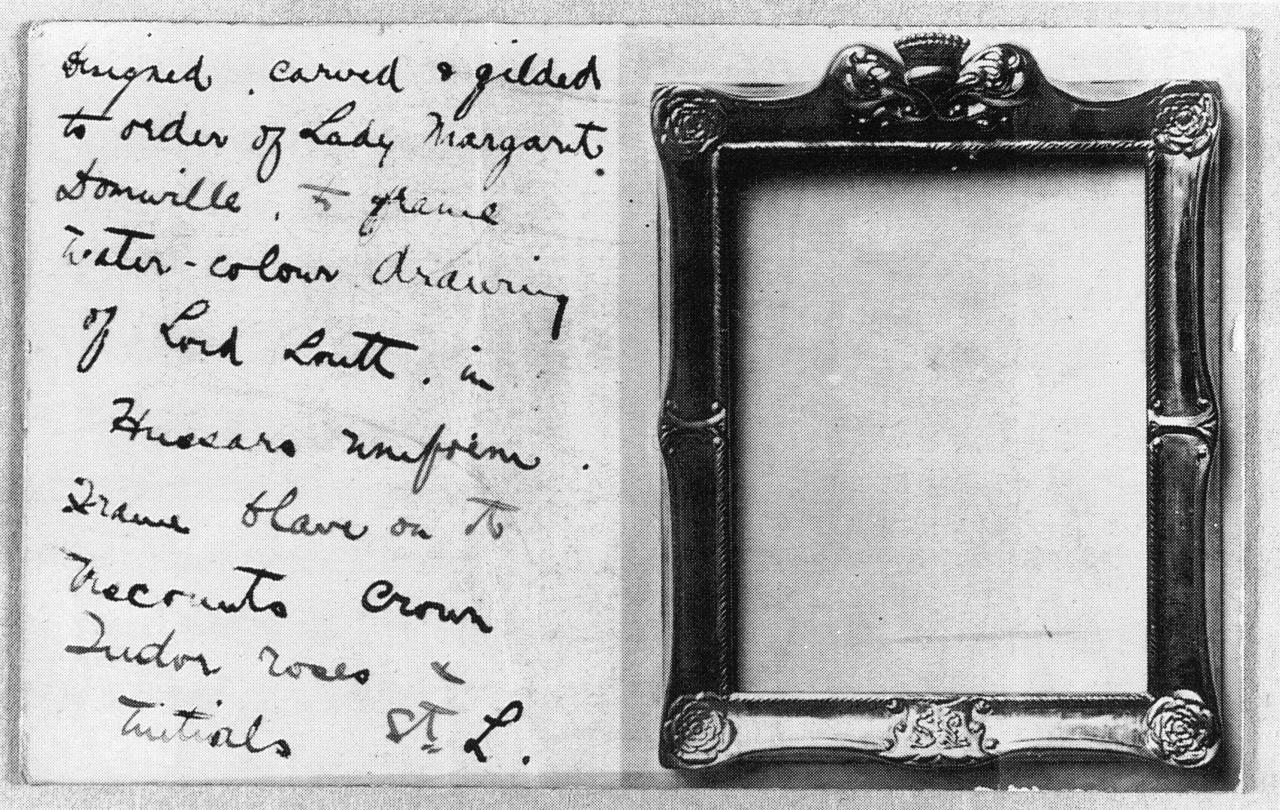 Designed, carved & gilded
to order of Lady Margaret
Domville, to frame
Water-colour drawing
of Lord Louth, in
Hussars uniform.
Frame has on it
Viscounts Crown
Tudor roses &
initials St L.
St L